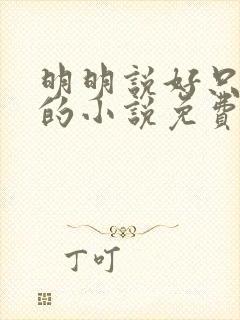 明明説好只
的小說免費
丁叮